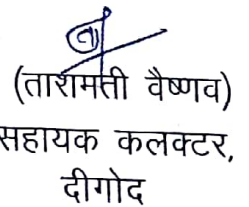 (तारामती वैष्णव)
सहायक कलक्टर,
दीगोद